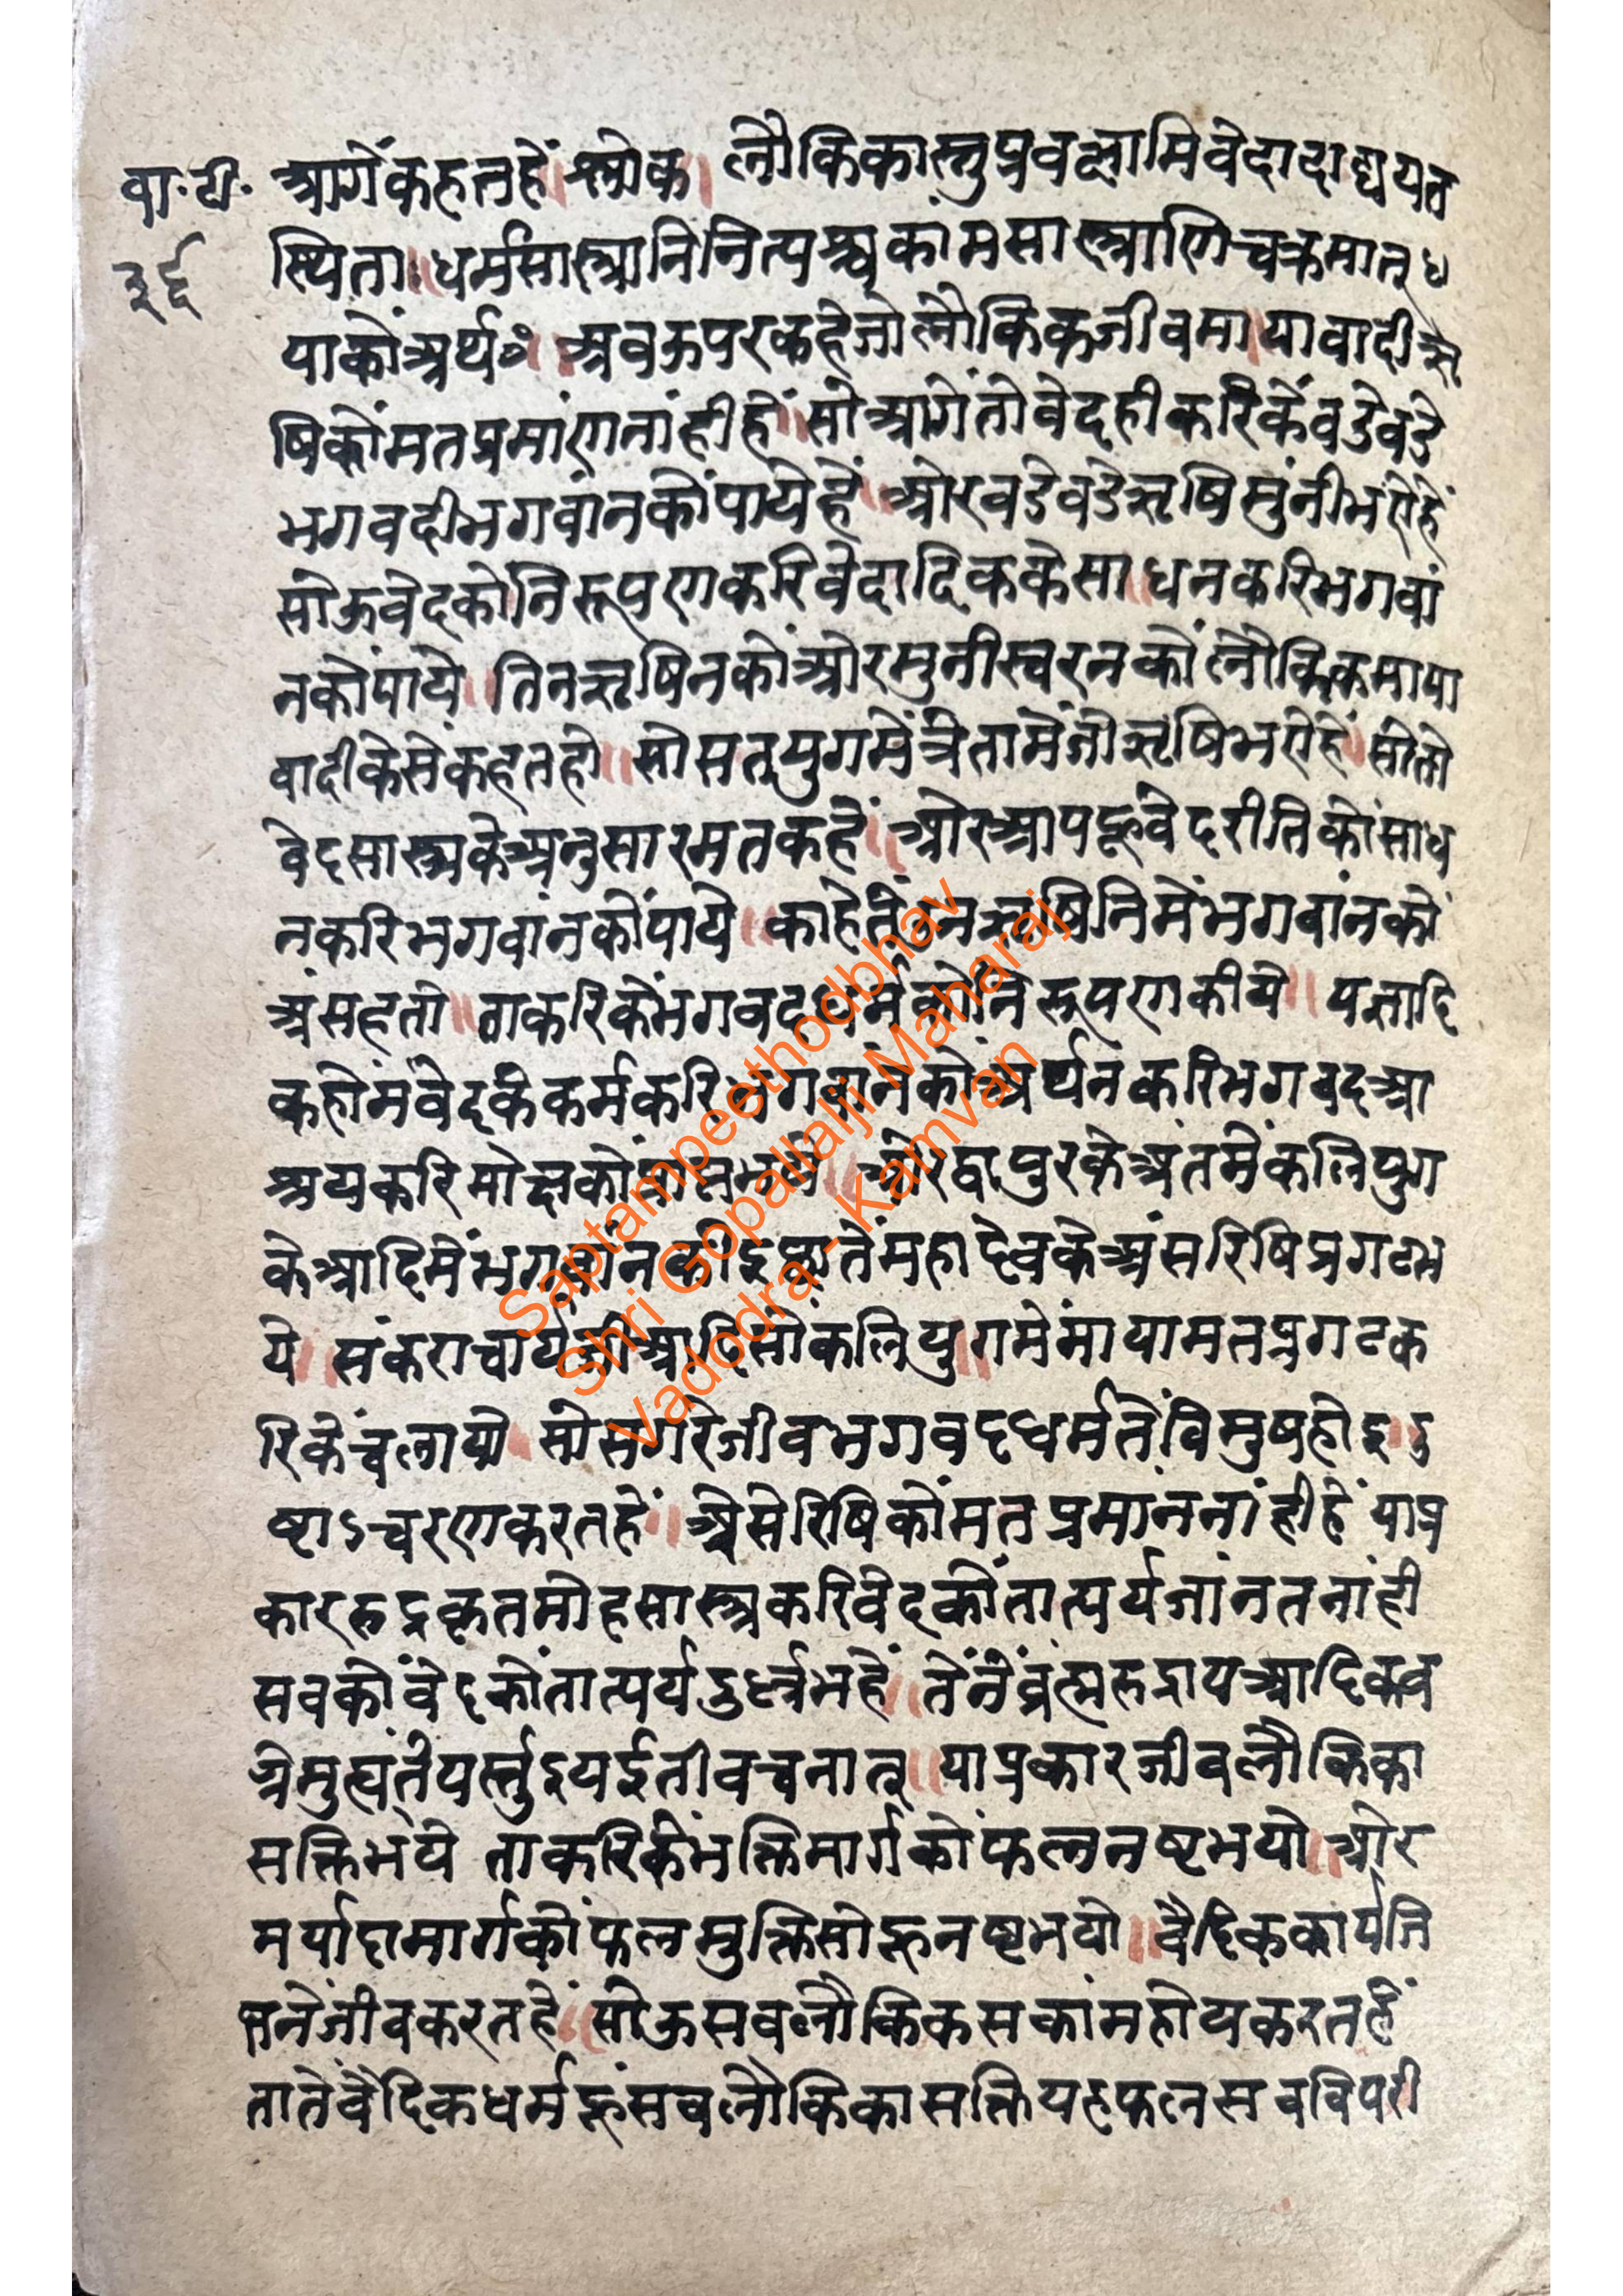 वा.टी.
३६
आगेंकहतहें।श्लोक। लौकिकास्तुप्रवक्षामिवेदादाश्चयत
स्थिता॥धर्मसास्त्रानिनित्यश्चकांमसास्त्राणिचक्रमात्४
याकोंअर्थः॥अवऊपरकहेजोलौकिकजीवमायावादीऋ
षिकोंमतप्रमांणनांहीहें॥सोआगेंतोवेदहीकरिकेंवडेवडे
भगवदीभगवांनकोंपायेहें॥ओरवडेवडेऋषिमुंनीभऐहें
सोऊवेदकोनिरूपणकरिवेदादिककेसाधनकरिभगवां
नकोंपाये॥तिनऋषिनकोंओरमुनीस्वरनकोंलौकिकमाया
वादीकेसेंकहतहो॥सोसतयुगमेंत्रेतामेंजोऋषिभऐहें॥सोतो
वेदसास्त्रकेअनुसारमतकहें॥ओरआपहूवेदरीतिकोंसाध
नकरिभगवांनकोंपाये॥काहेतेंउनऋषिनिमेंभगवांनको
अंसहतो॥ताकरिकेंभगवदधर्मकोंनिरूपणकीये॥यज्ञादि
कहोमवेदकेकर्मकरिभगवांनकोंअर्पनकरिभगवदआ
श्रयकरिमोक्षकोंप्राप्तभये॥ओरद्वापुरकेअंतमेंकलियुग
केआदिमेंभगवांनकीइछातेंमहादेवकेअंसरिषिप्रगटभ
ये॥संकराचार्यजीआदिसोंकलियुगमेंमायामतप्रगटक
रिकेंचलायो॥सोसगरेजीवभगवदधर्मतेंविमुषहोइदु
ष्टाऽचरणकरतहें॥ऐसेरिषिकोंमतप्रमांननांहीहें याप्र
काररुद्रकृतमोहसास्त्रकरिवेदकोंतात्पर्यजांनतनांही
सवकोंवेदकोंतात्पर्यदुर्ल्लभहें॥तेंनेंब्रह्मरुदाय आदिकव
येमुह्यतेयर्स्तुइयईतीवचनात्॥याप्रकारजीवलौकिका
सक्तिभये ताकरिकेंभक्तिमार्गकोंफलनष्टभयो॥ओर
मर्यादामार्गकोंफलमुक्तिसोहूनष्टभयो॥वैदिककार्यजि
तनेंजीवकरतहें॥सोऊसवलौकिकसकांमहोयकरतहें
तातेंवैदिकधर्महूंसवलौकिकासक्तियहफलसवविपरी
Saptampeethodbhav
Shri Gopallalji Maharaj
Vadodra - Kamvan